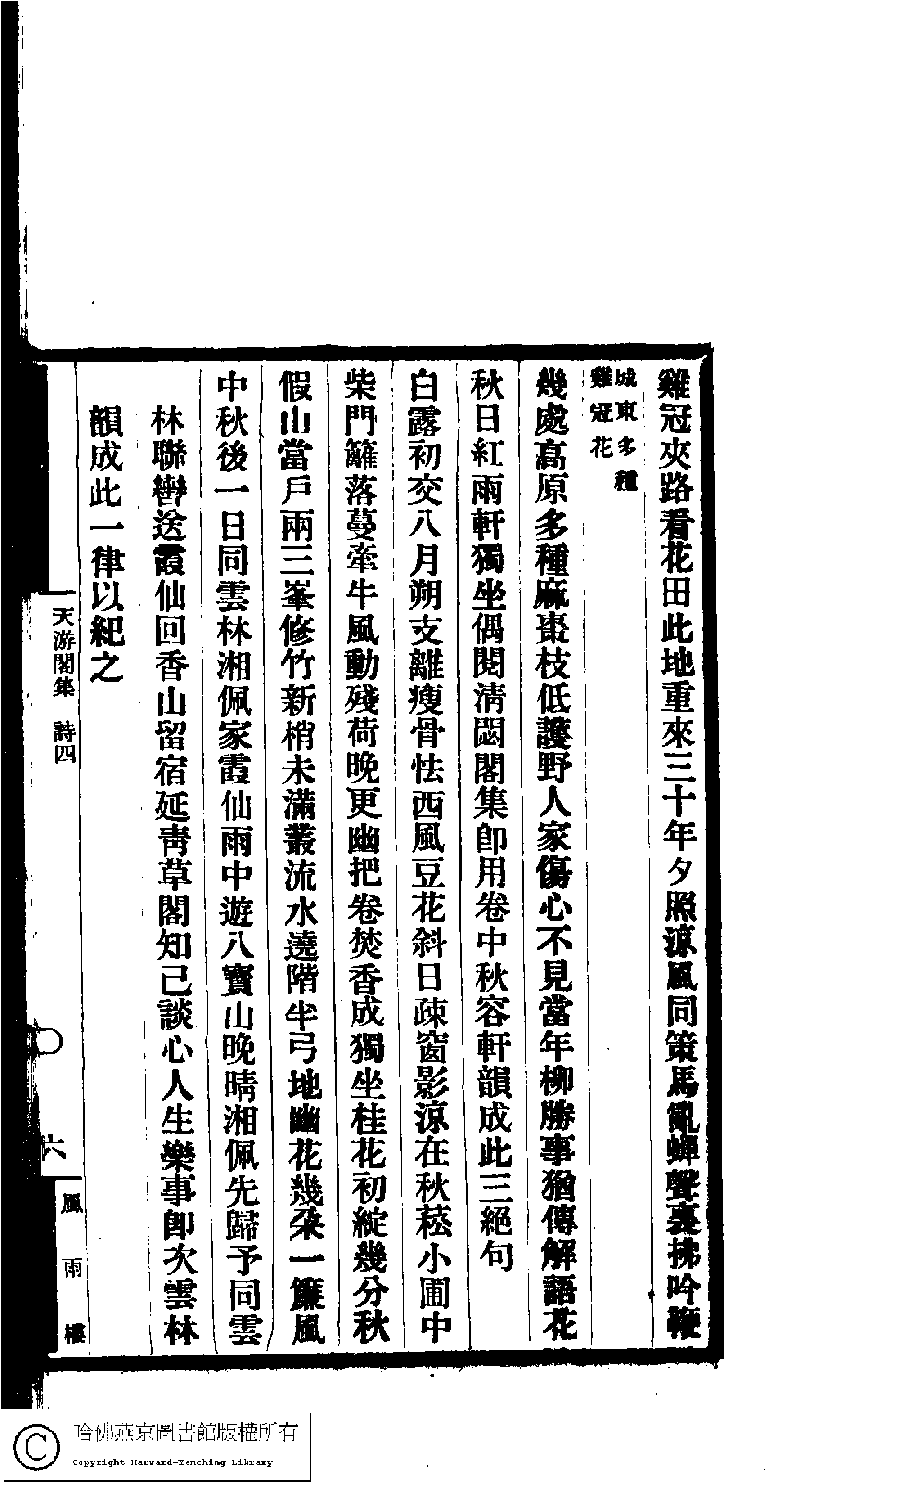 雞冠夾路看花田此地重來三十年夕照涼風同策馬亂蟬聲裏拂吟鞭
城東多種
雞冠花
幾處高原多種麻棗枝低護野人家傷心不見當年柳勝事猶傳解語花
秋日紅雨軒獨坐偶閱清閟閣集卽用卷中秋容軒韻成此三絕句
白露初交八月朔支離瘦骨怯西風豆花斜日疎窗影涼在秋菘小圃中
柴門籬落蔓牽牛風動殘荷晚更幽把卷焚香成獨坐桂花初綻幾分秋
假山當戶兩三峯修竹新梢未滿叢流水遶階半弓地幽花幾朶一簾風
中秋後一日同雲林湘佩家霞仙雨中遊八寶山晚晴湘佩先歸予同雲
林聯轡送霞仙回香山留宿延靑草閣知己談心人生樂事卽次雲林
韻成此一律以紀之
天游閣集 詩四
六
風雨樓
哈佛燕京圖書館版權所有
Copyright Harvard-Yenching Library